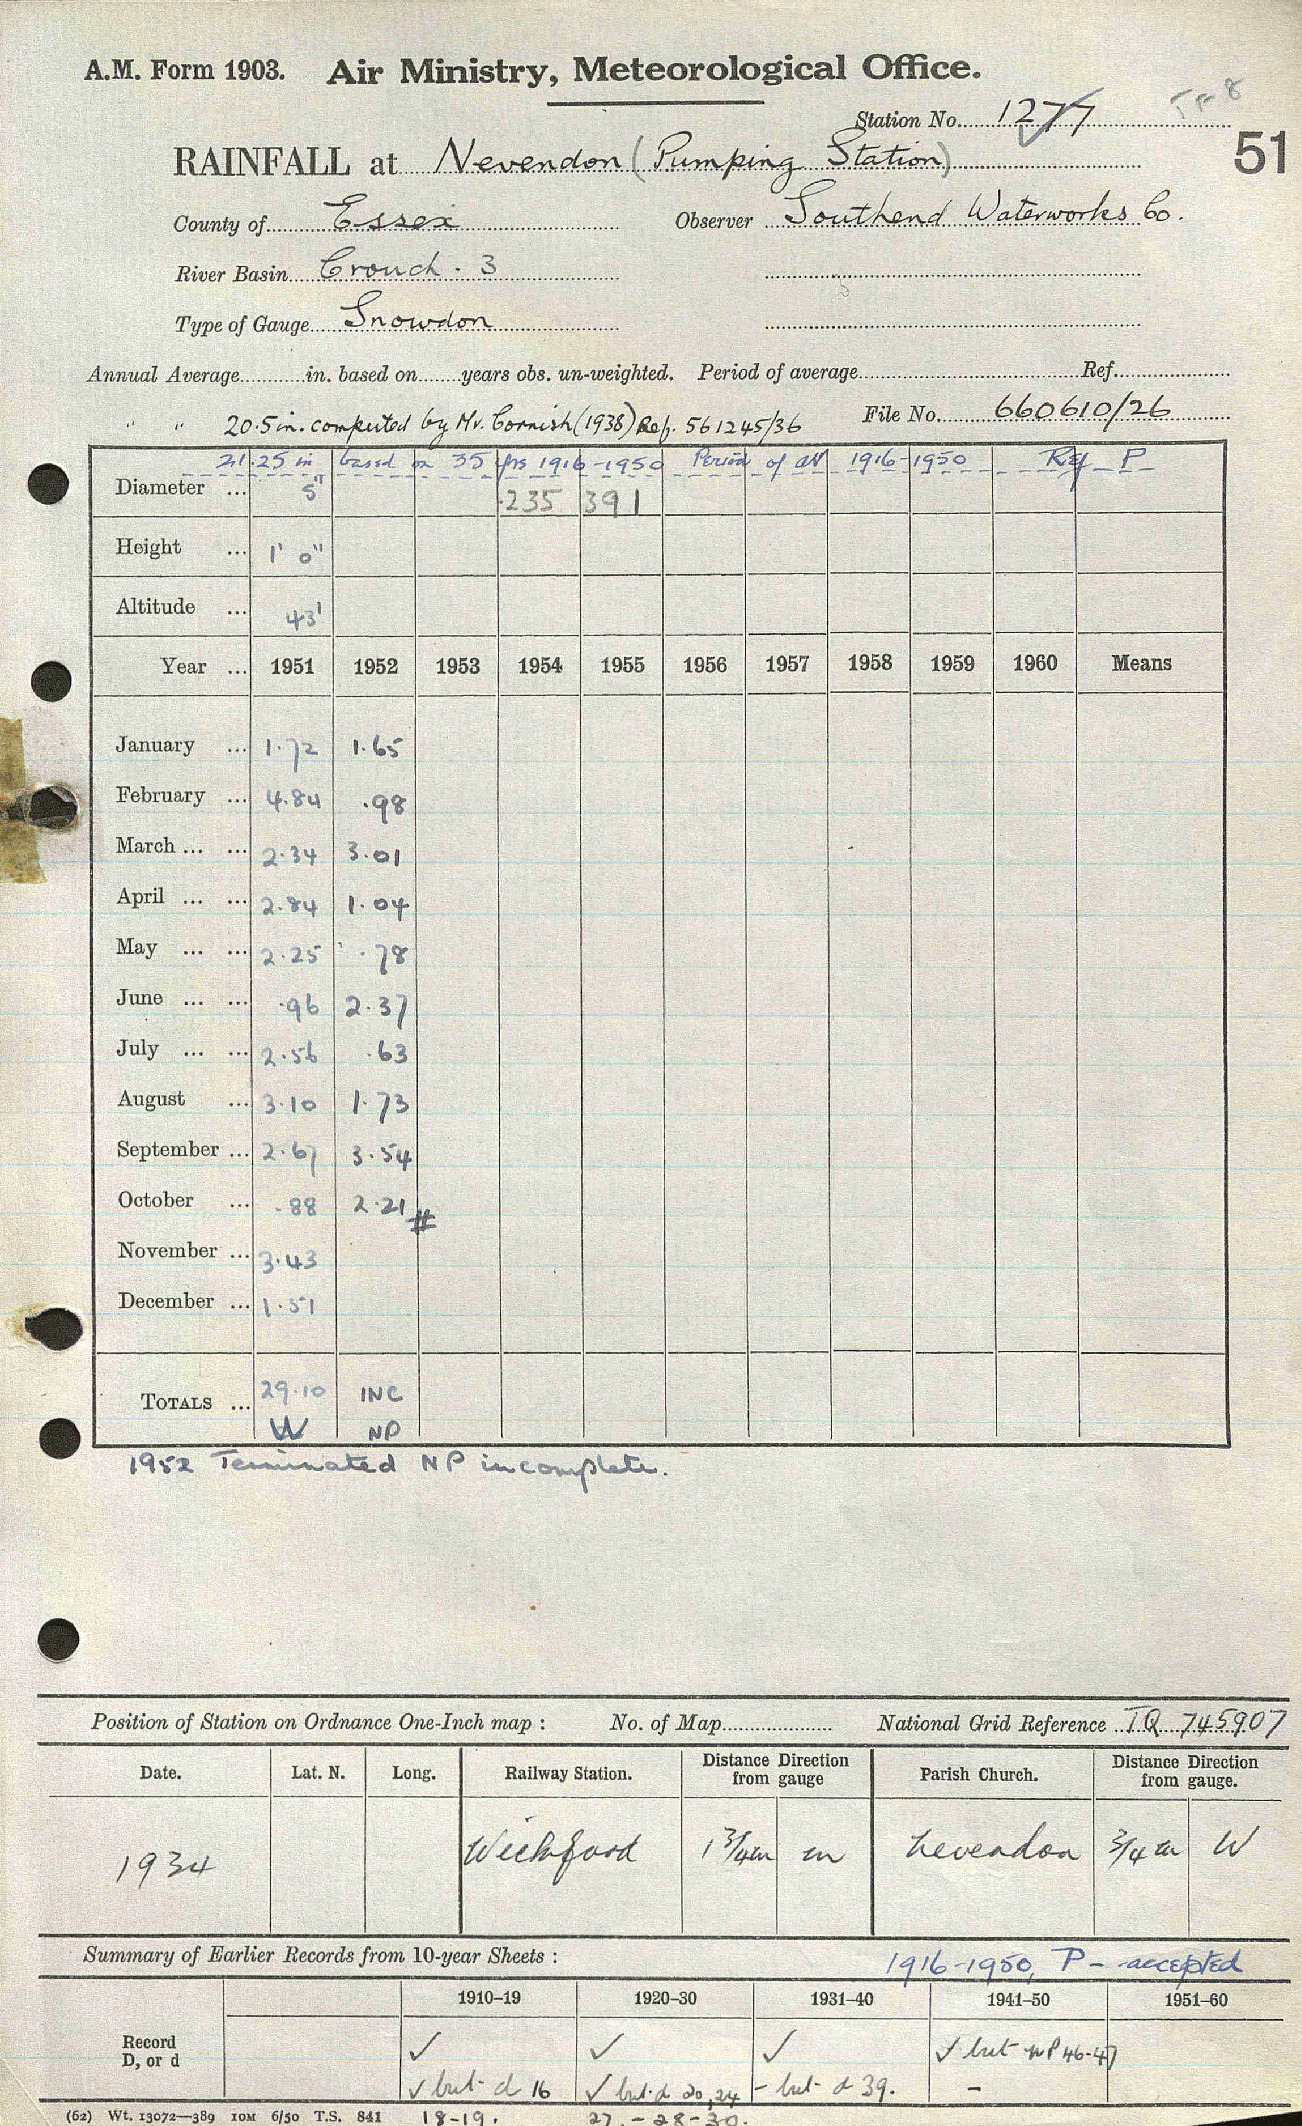 A.M. Form 1903. Air Ministry, Meteorological Office.
Station No. 1277 TF 8
51
RAINFALL at Nevendon (Pumping Station)
County of Essex Observer Southend Waterworks Co.
River Basin Crouch . 3
Type of Gauge Snowdon
Annual Average............in. based on........years obs. un-weighted. Period of average Ref.
" " 20.5in. computed by Mr. Cornish (1938) Ref. 561245/36 File No. 660610/26
21.25 in based on 35 yrs 1916-1950 Period of av 1916-1950 Ref P
Diameter ... 5" .235 391
Height ... 1' 0"
Altitude ... 43'
Year ... 1951 1952 1953 1954 1955 1956 1957 1958 1959 1960 Means
January ... 1.72 1.65
February ... 4.84 .98
March ... ... 2.34 3.01
April ... ... 2.84 1.04
May ... ... 2.25 .78
June ... ... .96 2.37
July ... ... 2.56 .63
August ... 3.10 1.73
September ... 2.67 3.54
October ... .88 2.21 #
November ... 3.43
December ... 1.51
TOTALS ... 29.10 INC
W NP
1952 Terminated NP incomplete.
Position of Station on Ordnance One-Inch map : No. of Map National Grid Reference TQ 745907
Date. Lat. N. Long. Railway Station. Distance Direction from gauge Parish Church. Distance Direction from gauge.
1934 Wickford 1 3/4 m Nevendon 3/4 m W
Summary of Earlier Records from 10-year Sheets : 1916-1950, P - accepted
1910–19 1920–30 1931–40 1941–50 1951–60
Record ✓ ✓ ✓ ✓ but NP 46-47
D, or d ✓ but d 16 ✓ but d 20, 24 - but d 39. -
(62) Wt. 13072—389 10M 6/50 T.S. 841 18-19. 27.-28-30.